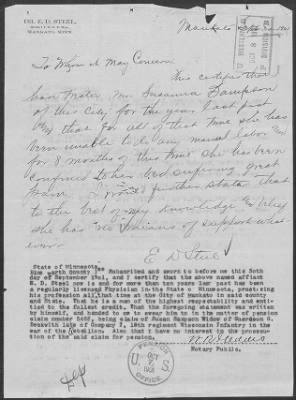 DR. E. D. STEEL,
MANKATO, MINN.
Mankato
To Whom it May Concern
This certifies that
Mrs. Susanna Sampson
of this City for the year last past
that for all of that time she has
been unable to do any manual labor
for 8 months of this time she has been
confined to her bed suffering great
pain. I would further state that
to the best of my knowledge belief
she has no means of support what
ever.
E D Steel
State of Minnesota,
Blue Earth County Subscribed and sworn to before me this 30th
day of September 1901, and I certify that the above named affiant
E. D. Steel now is and for more than ten years last past has been
a regularly licensed Physician in the State of Minnesota, practicing
his profession all that time at the City of Mankato in said county
and State. That he is a man of the highest respectability and entitled
to the fullest credit. That the foregoing statement was written
by himself, and handed to me to swear him to in the matter of pension
claim number being claim of Susan Sampson Widow of
late of Company 16th regiment Wisconsin Infantry in the
war of the Rebellion. Also that I have no interest in the prosecution
of the said claim for pension.
Notary Public.
U S PENSION OFFICE
OCT
1901